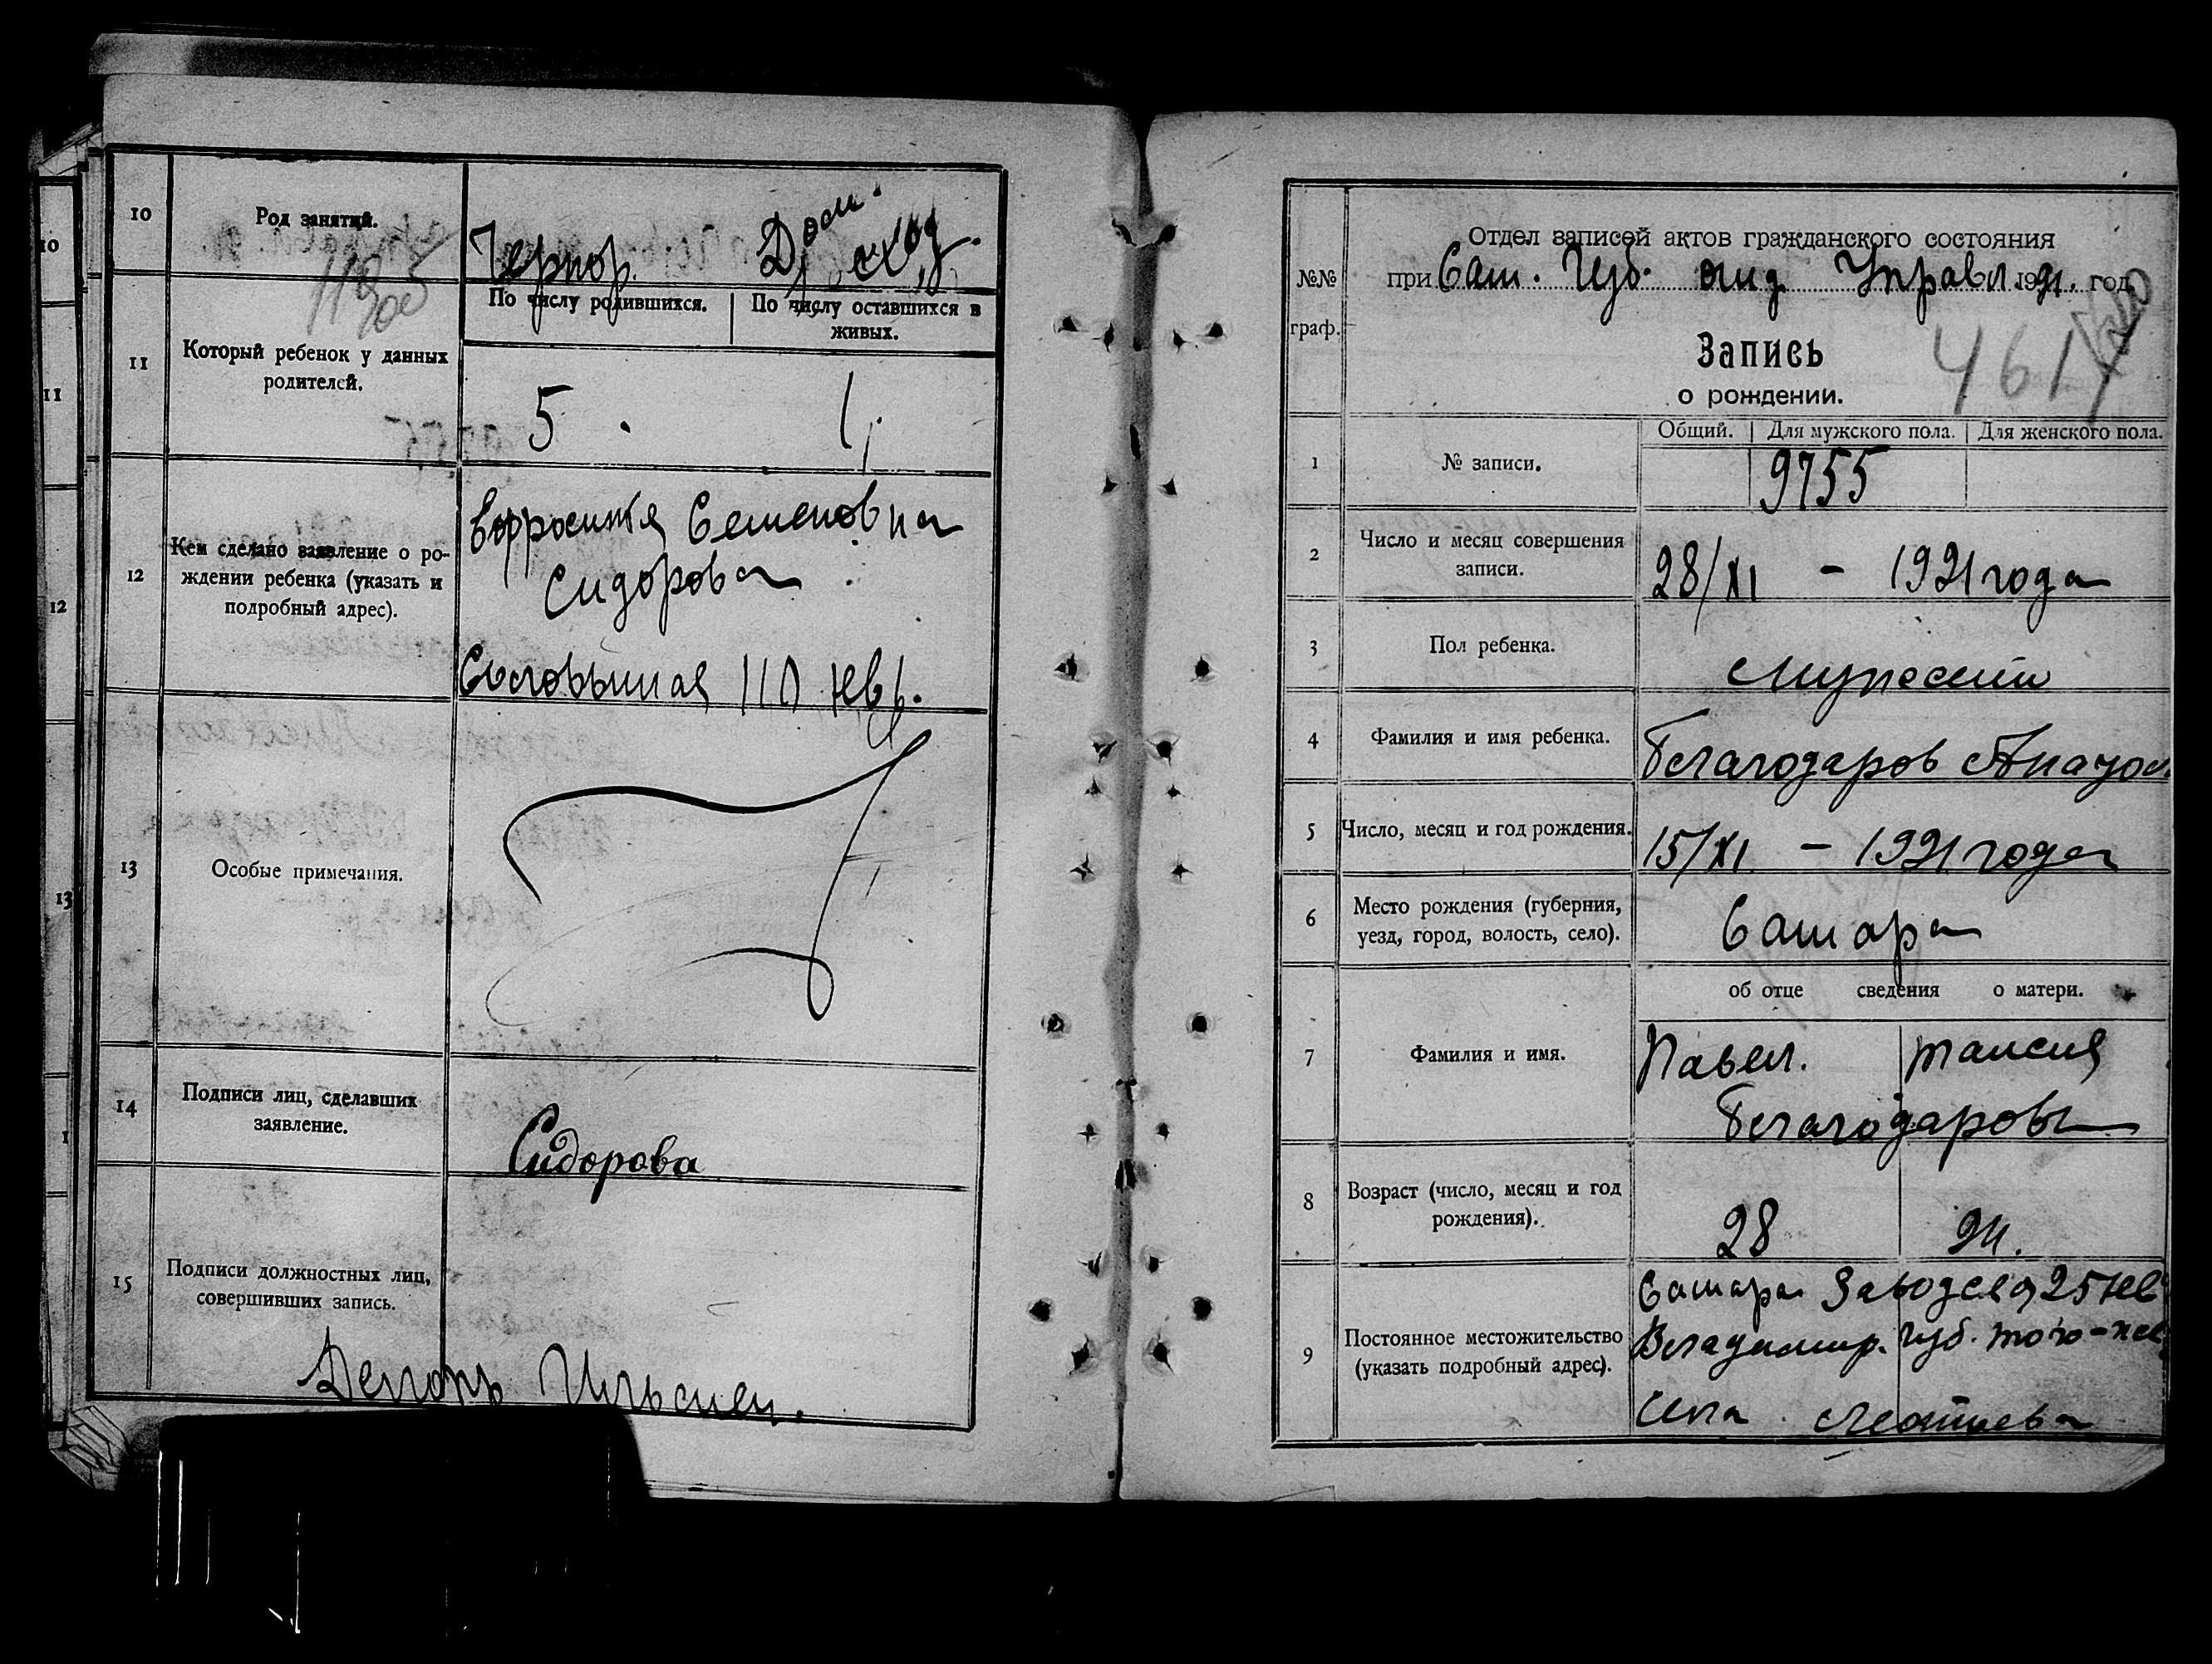 10
Род занятий.
Чернор.
Дом.
По числу родившихся.
По числу оставшихся в
живых.
11
Который ребенок у данных
родителей.
5
1
12
Кем сделано заявление о ро-
ждении ребенка (указать и
подробный адрес).
Ефросиния Семеновна
Сидорова
110
13
Особые примечания.
14
Подписи лиц, сделавших
заявление.
Сидорова
15
Подписи должностных лиц,
совершивших запись.
№№
граф.
Отдел записей актов гражданского состояния
при Сам. Губ. отд Управл. 1921. год
4617
Запись
о рождении.
Общий. Для мужского пола. Для женского пола.
1
№ записи.
9755
2
Число и месяц совершения
записи.
28/XI – 1921 года
3
Пол ребенка.
мужской
4
Фамилия и имя ребенка.
Благодаров Анатол
5
Число, месяц и год рождения.
15/XI – 1921 года
6
Место рождения (губерния,
уезд, город, волость, село).
Самара
об отце сведения о матери.
7
Фамилия и имя.
Павел. Таисия
Благодаровы
8
Возраст (число, месяц и год
рождения).
28 24.
9
Постоянное местожительство
(указать подробный адрес).
Самара Заводская 25
Владимир. Губ. того-же
села